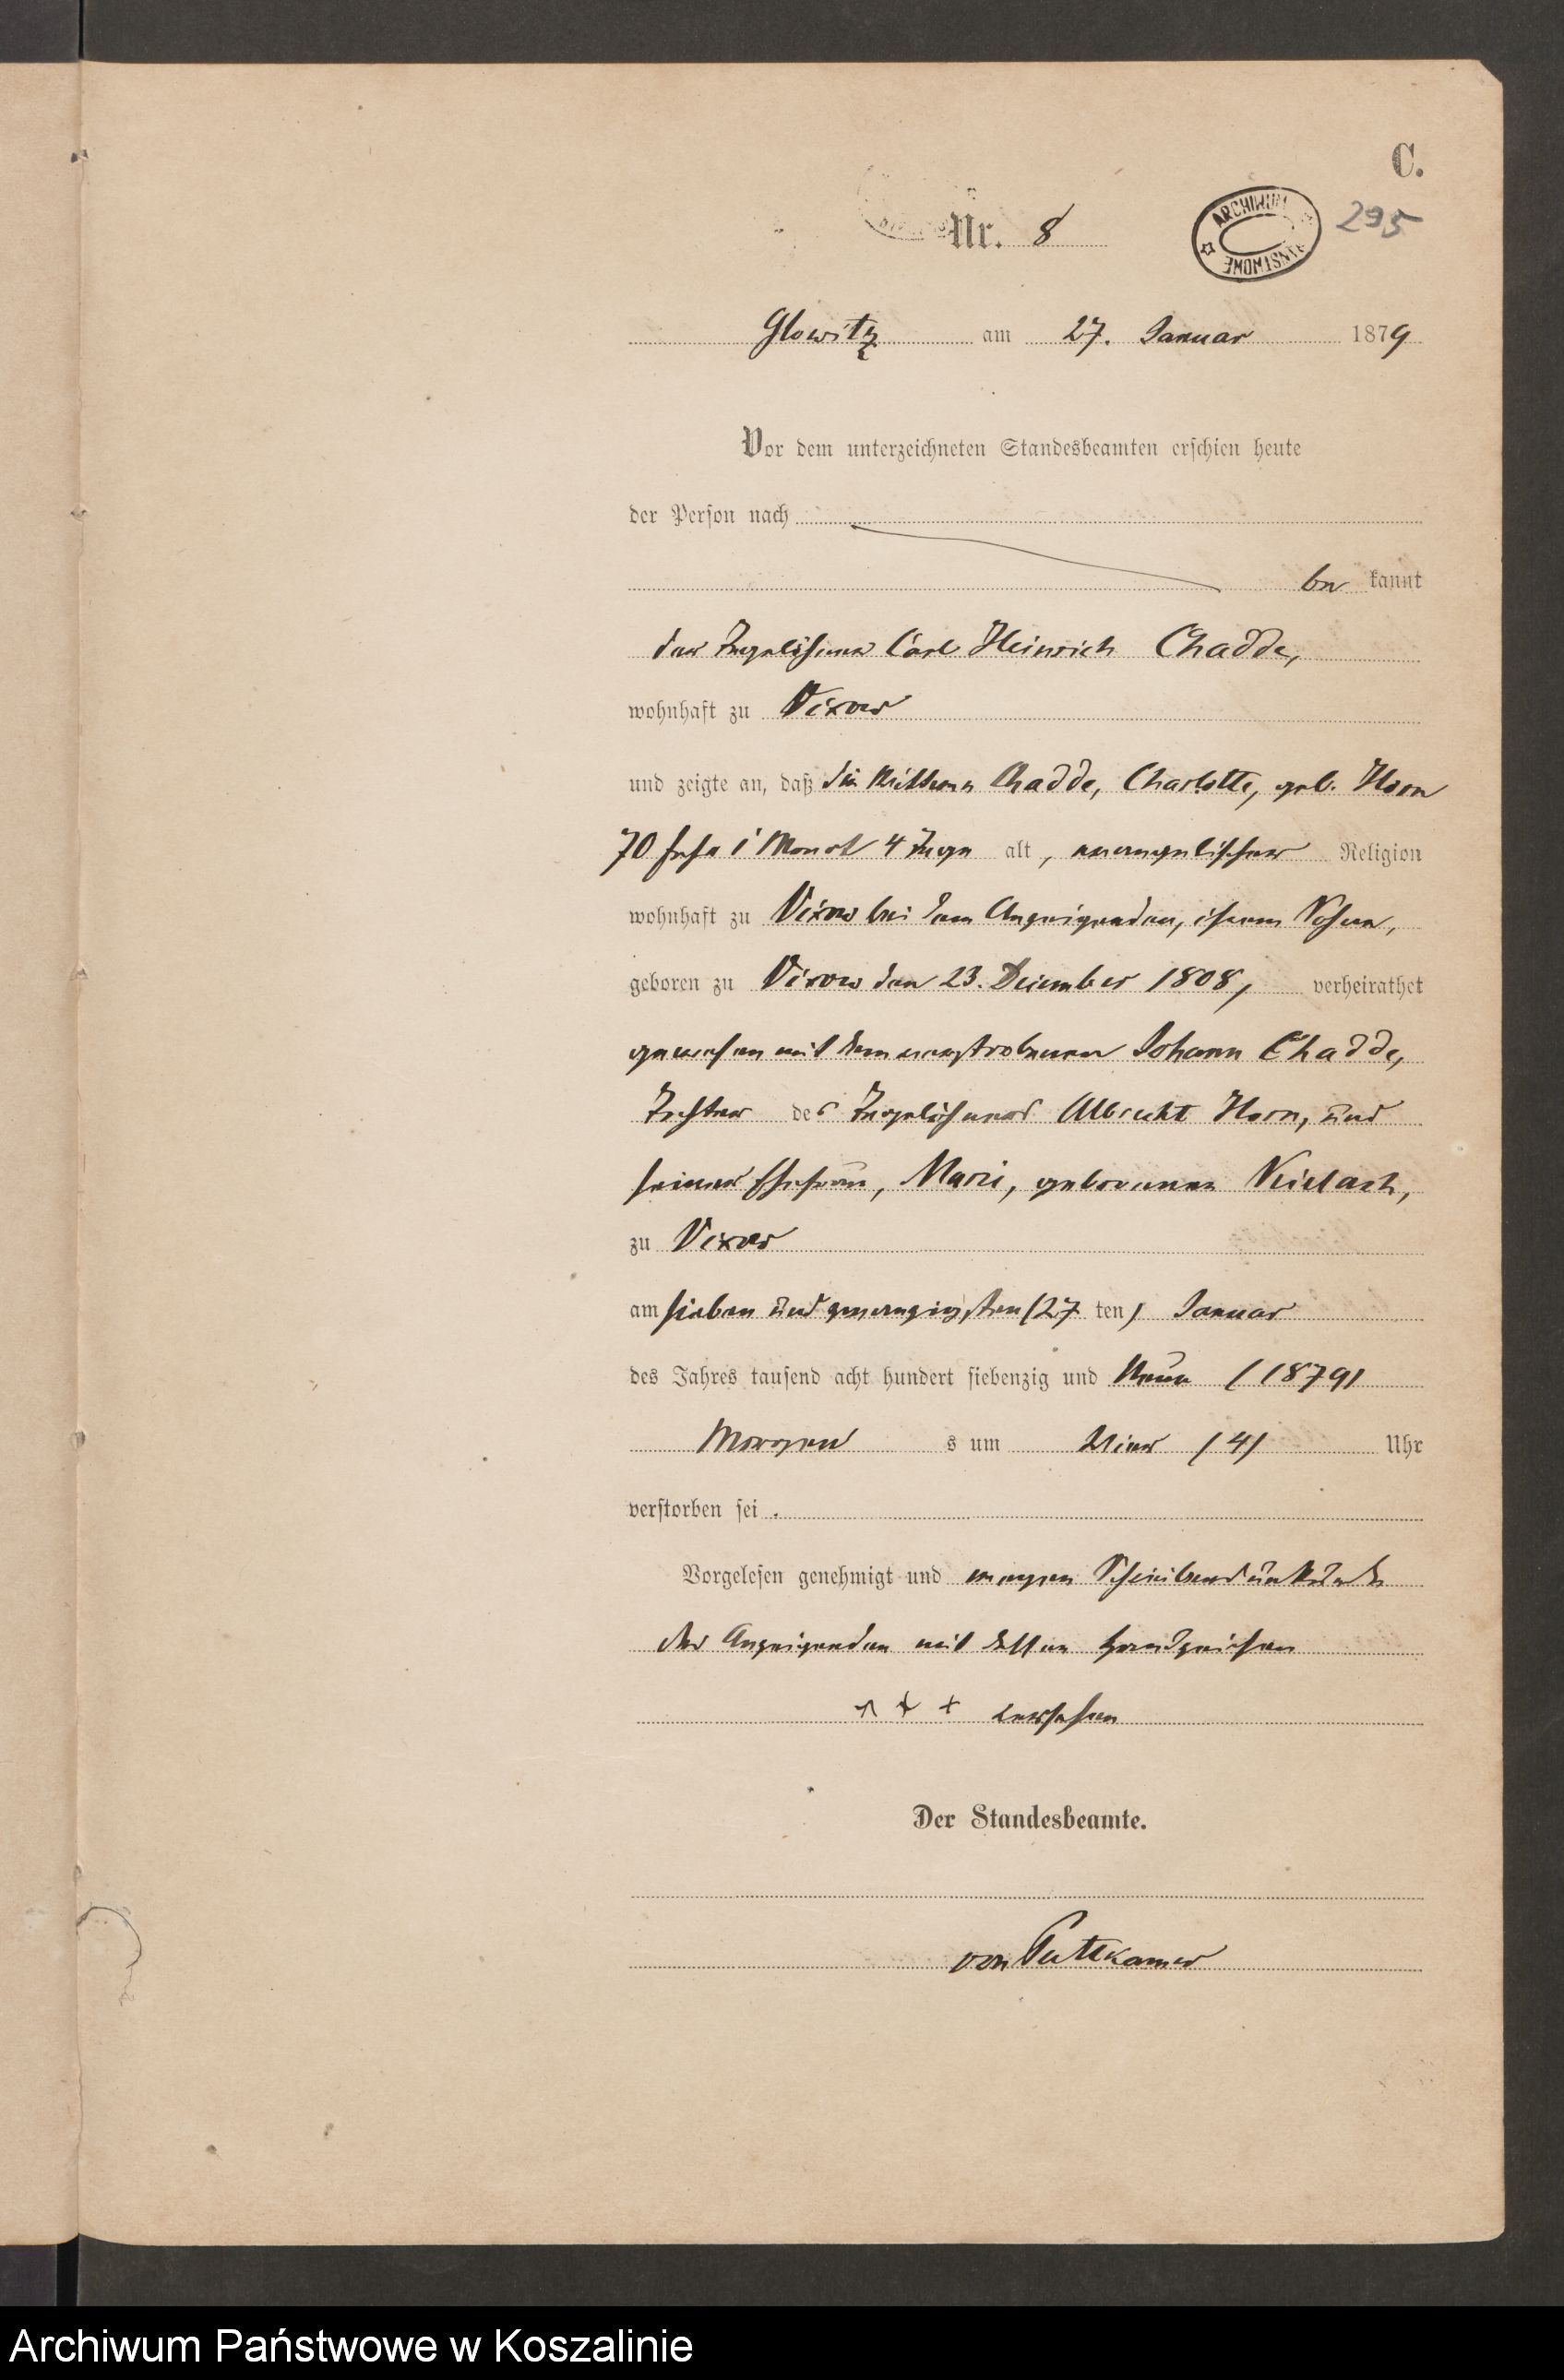 C.
Nr. 8
ARCHIWUM PAŃSTWOWE
295
Glowitz am 27. Januar 1879
Vor dem unterzeichneten Standesbeamten erschien heute
der Person nach
be kannt
der Tagelöhner Carl Heinrich Chadde,
wohnhaft zu Vixow
und zeigte an, daß die Chadde, Charlotte, geb. Horn
70 Jahr 1 Monat 4 Tage alt, evangelischer Religion
wohnhaft zu Vixow bei dem Anzeigenden, ihrem Sohne,
geboren zu Vixow den 23. December 1808, verheirathet
gewesen mit dem verstorbenen Johann Chadde,
Tochter des Tagelöhners Albrecht Horn, und
seiner Ehefrau, Marie, geborenen
zu Vixow
am sieben und zwanzigsten (27 ten) Januar
des Jahres tausend acht hundert siebenzig und Neun (1879)
Morgen s um Vier (4) Uhr
verstorben sei.
Vorgelesen genehmigt und wegen Schreibensunkunde
des Anzeigenden mit dessen Handzeichen
+ + + versehen
Der Standesbeamte.
von Puttkamer
Archiwum Państwowe w Koszalinie